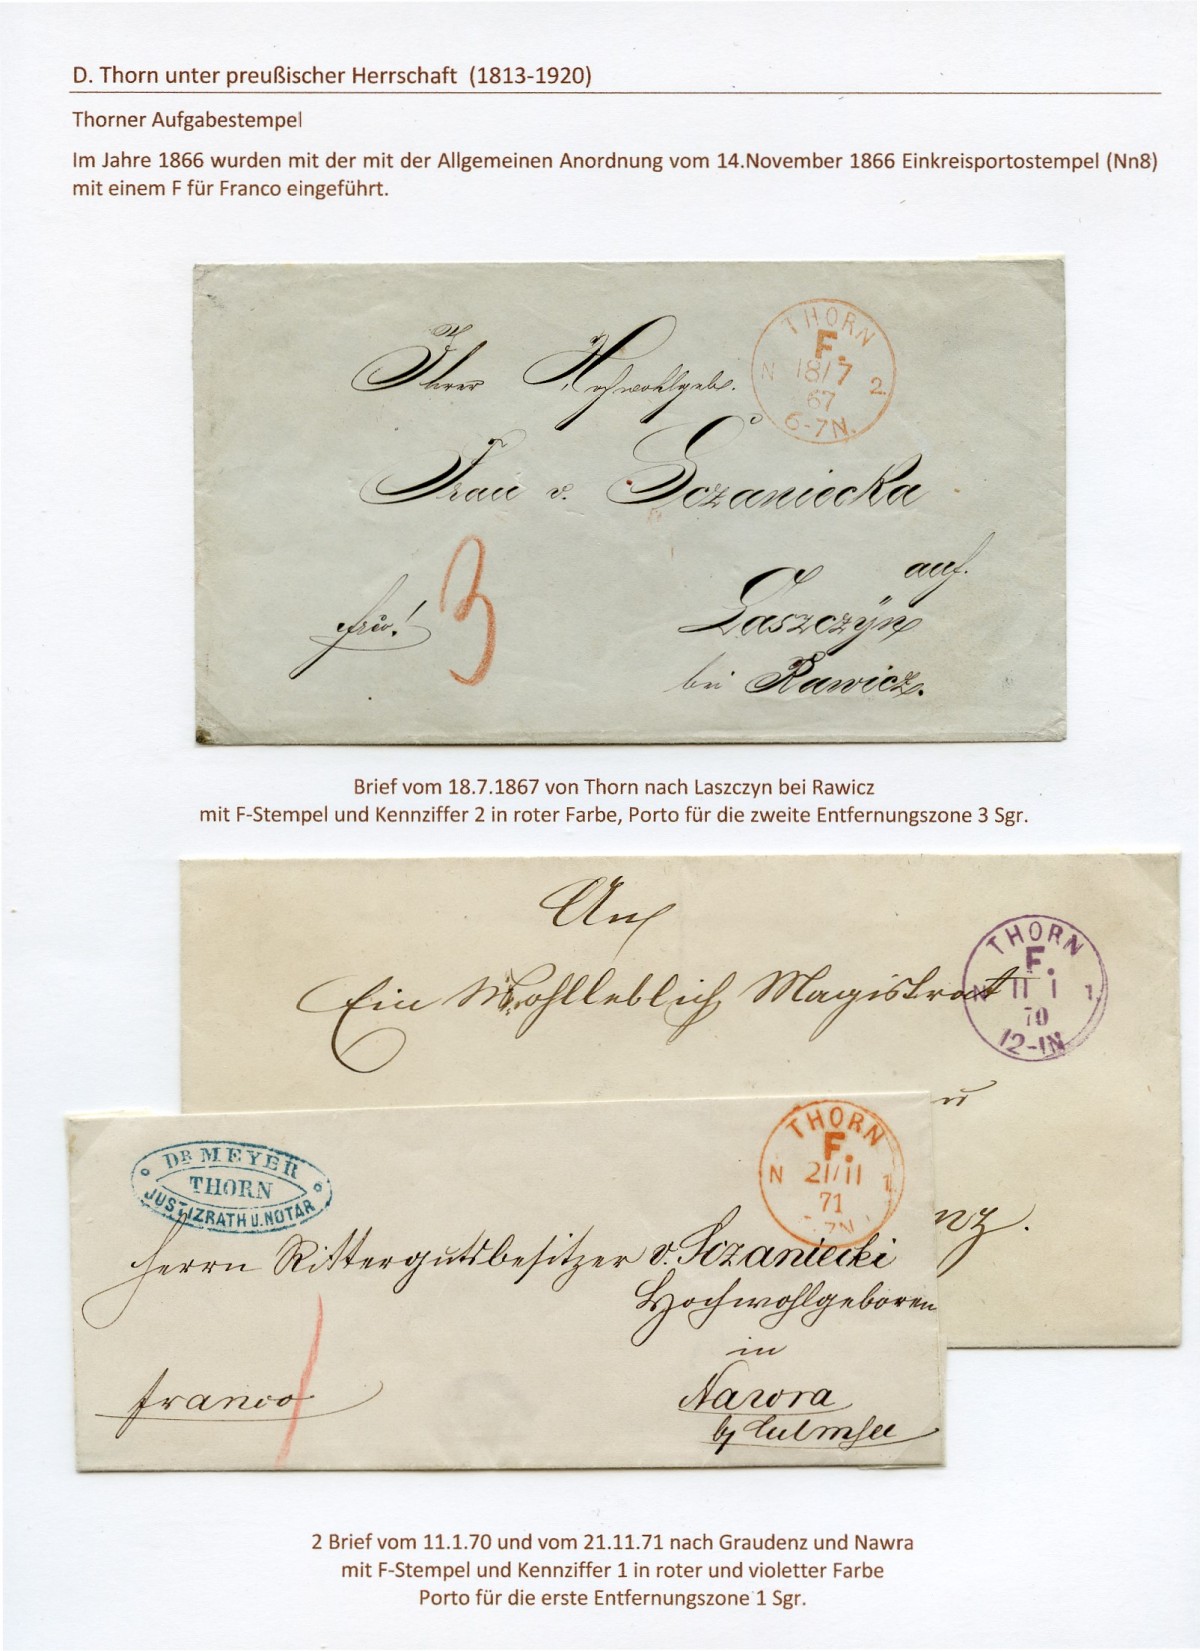 D. Thorn unter preußischer Herrschaft (1813-1920)
Thorner Aufgabestempel
Im Jahre 1866 wurden mit der mit der Allgemeinen Anordnung vom 14.November 1866 Einkreisportostempel (Nn8)
mit einem F für Franco eingeführt.
THORN
F.
N 18/7 2.
67
6-7N.
Ihrer Hochwohlgeb.
Frau v. Sczaniecka
auf.
Laszczÿn
bei Rawicz.
frco!
3
Brief vom 18.7.1867 von Thorn nach Laszczyn bei Rawicz
mit F-Stempel und Kennziffer 2 in roter Farbe, Porto für die zweite Entfernungszone 3 Sgr.
An
Ein Wohllöblich Magistrat
THORN
F.
N 11 1 1.
70
12-1N
nz.
DR MEYER
THORN
JUSTIZRATH U. NOTAR
THORN
F.
N 21/11 1.
71
Herrn Rittergutsbesitzer v. Sczaniecki
Hochwohlgeboren
in
Nawra
by Culmsee
franco
1
2 Brief vom 11.1.70 und vom 21.11.71 nach Graudenz und Nawra
mit F-Stempel und Kennziffer 1 in roter und violetter Farbe
Porto für die erste Entfernungszone 1 Sgr.